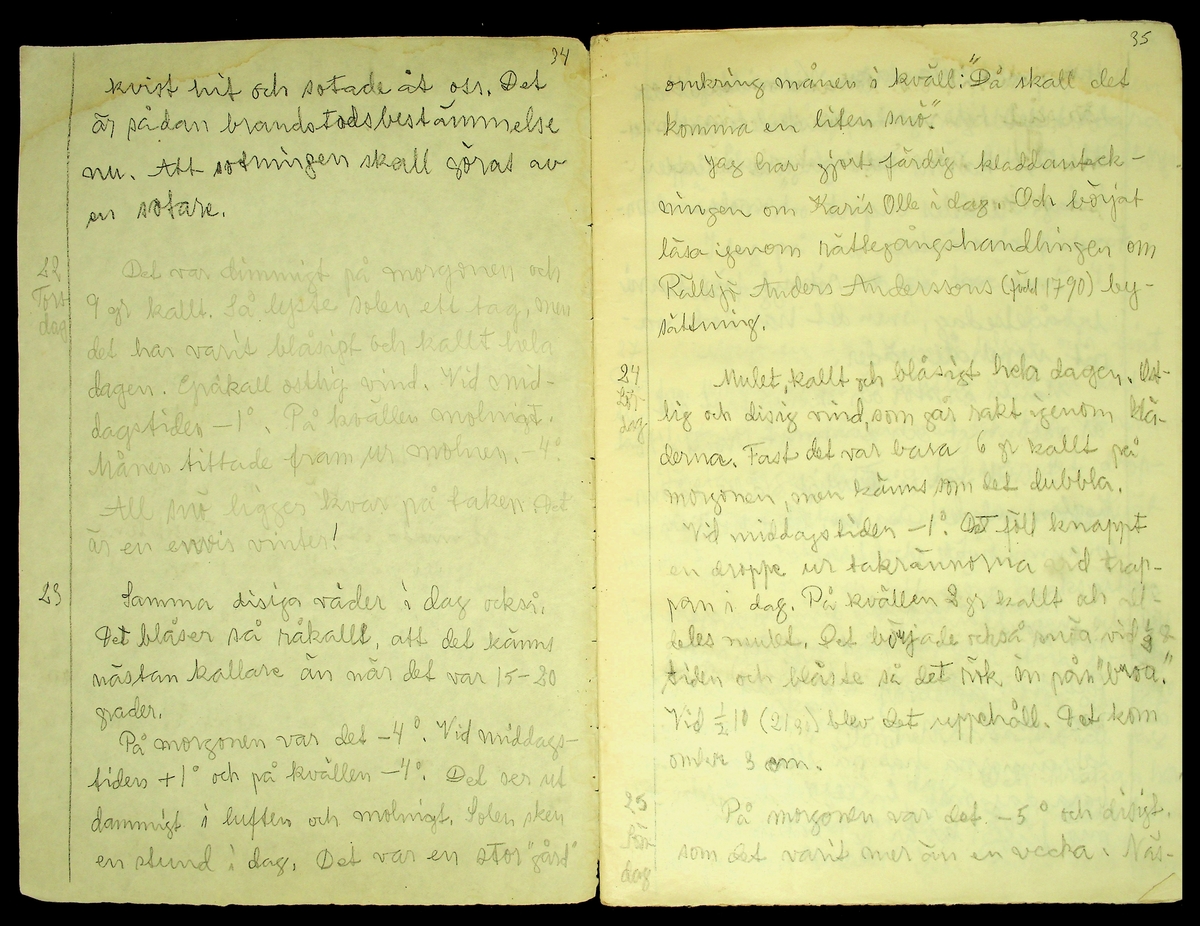 34
kvist hit och sotade åt oss. Det
är sådan brandstodsbestämmelse
nu. Att sotningen skall göras av
en sotare.
22
Tors
dag
Det var dimmigt på morgonen och
9 gr kallt. Så lyste solen ett tag, men
det har varit blåsigt och kallt hela
dagen. Spikall ostlig vind. Vid mid-
dagstiden -1°. På kvällen molnigt.
Månen tittade fram ur molnen. -4°
All snö ligger kvar på taken Det
är en envis vinter!
23
Samma disiga väder i dag också.
Det blåser så råkallt, att det känns
nästan kallare än när det var 15-20
grader.
På morgonen var det -4°. Vid middags-
tiden +1° och på kvällen -4°. Det ser ut
dammigt i luften och molnigt. Solen sken
en stund i dag. Det var en stor "gård"
35
omkring månen i kväll: "Då skall det
komma en liten snö."
Jag har gjort färdig kladdanteck-
ningen om Karis Olle i dag. Och börjat
läsa igenom rättegångshandlingen om
Rällsjö Anders Anderssons (född 1790) by-
sättning.
24
Lör-
dag
Mulet, kallt och blåsigt hela dagen. Ost-
lig och disig vind, som går rakt igenom klä-
derna. Fast det var bara 6 gr kallt på
morgonen, men känns som det dubbla.
Vid middagstiden -1°. Det föll knappt
en droppe ur takrännorna vid trap-
pan i dag. På kvällen 2 gr kallt och al-
deles mulet. Det började också snöa vid ½ 8
tiden och blåste så det rök in på'n "broa."
Vid ½ 10 (2130) blev det uppehåll. Det kom
omkr 3 cm.
25
Sön-
dag
På morgonen var det -5° och disigt.
som det varit mer än en vecka. Näs-